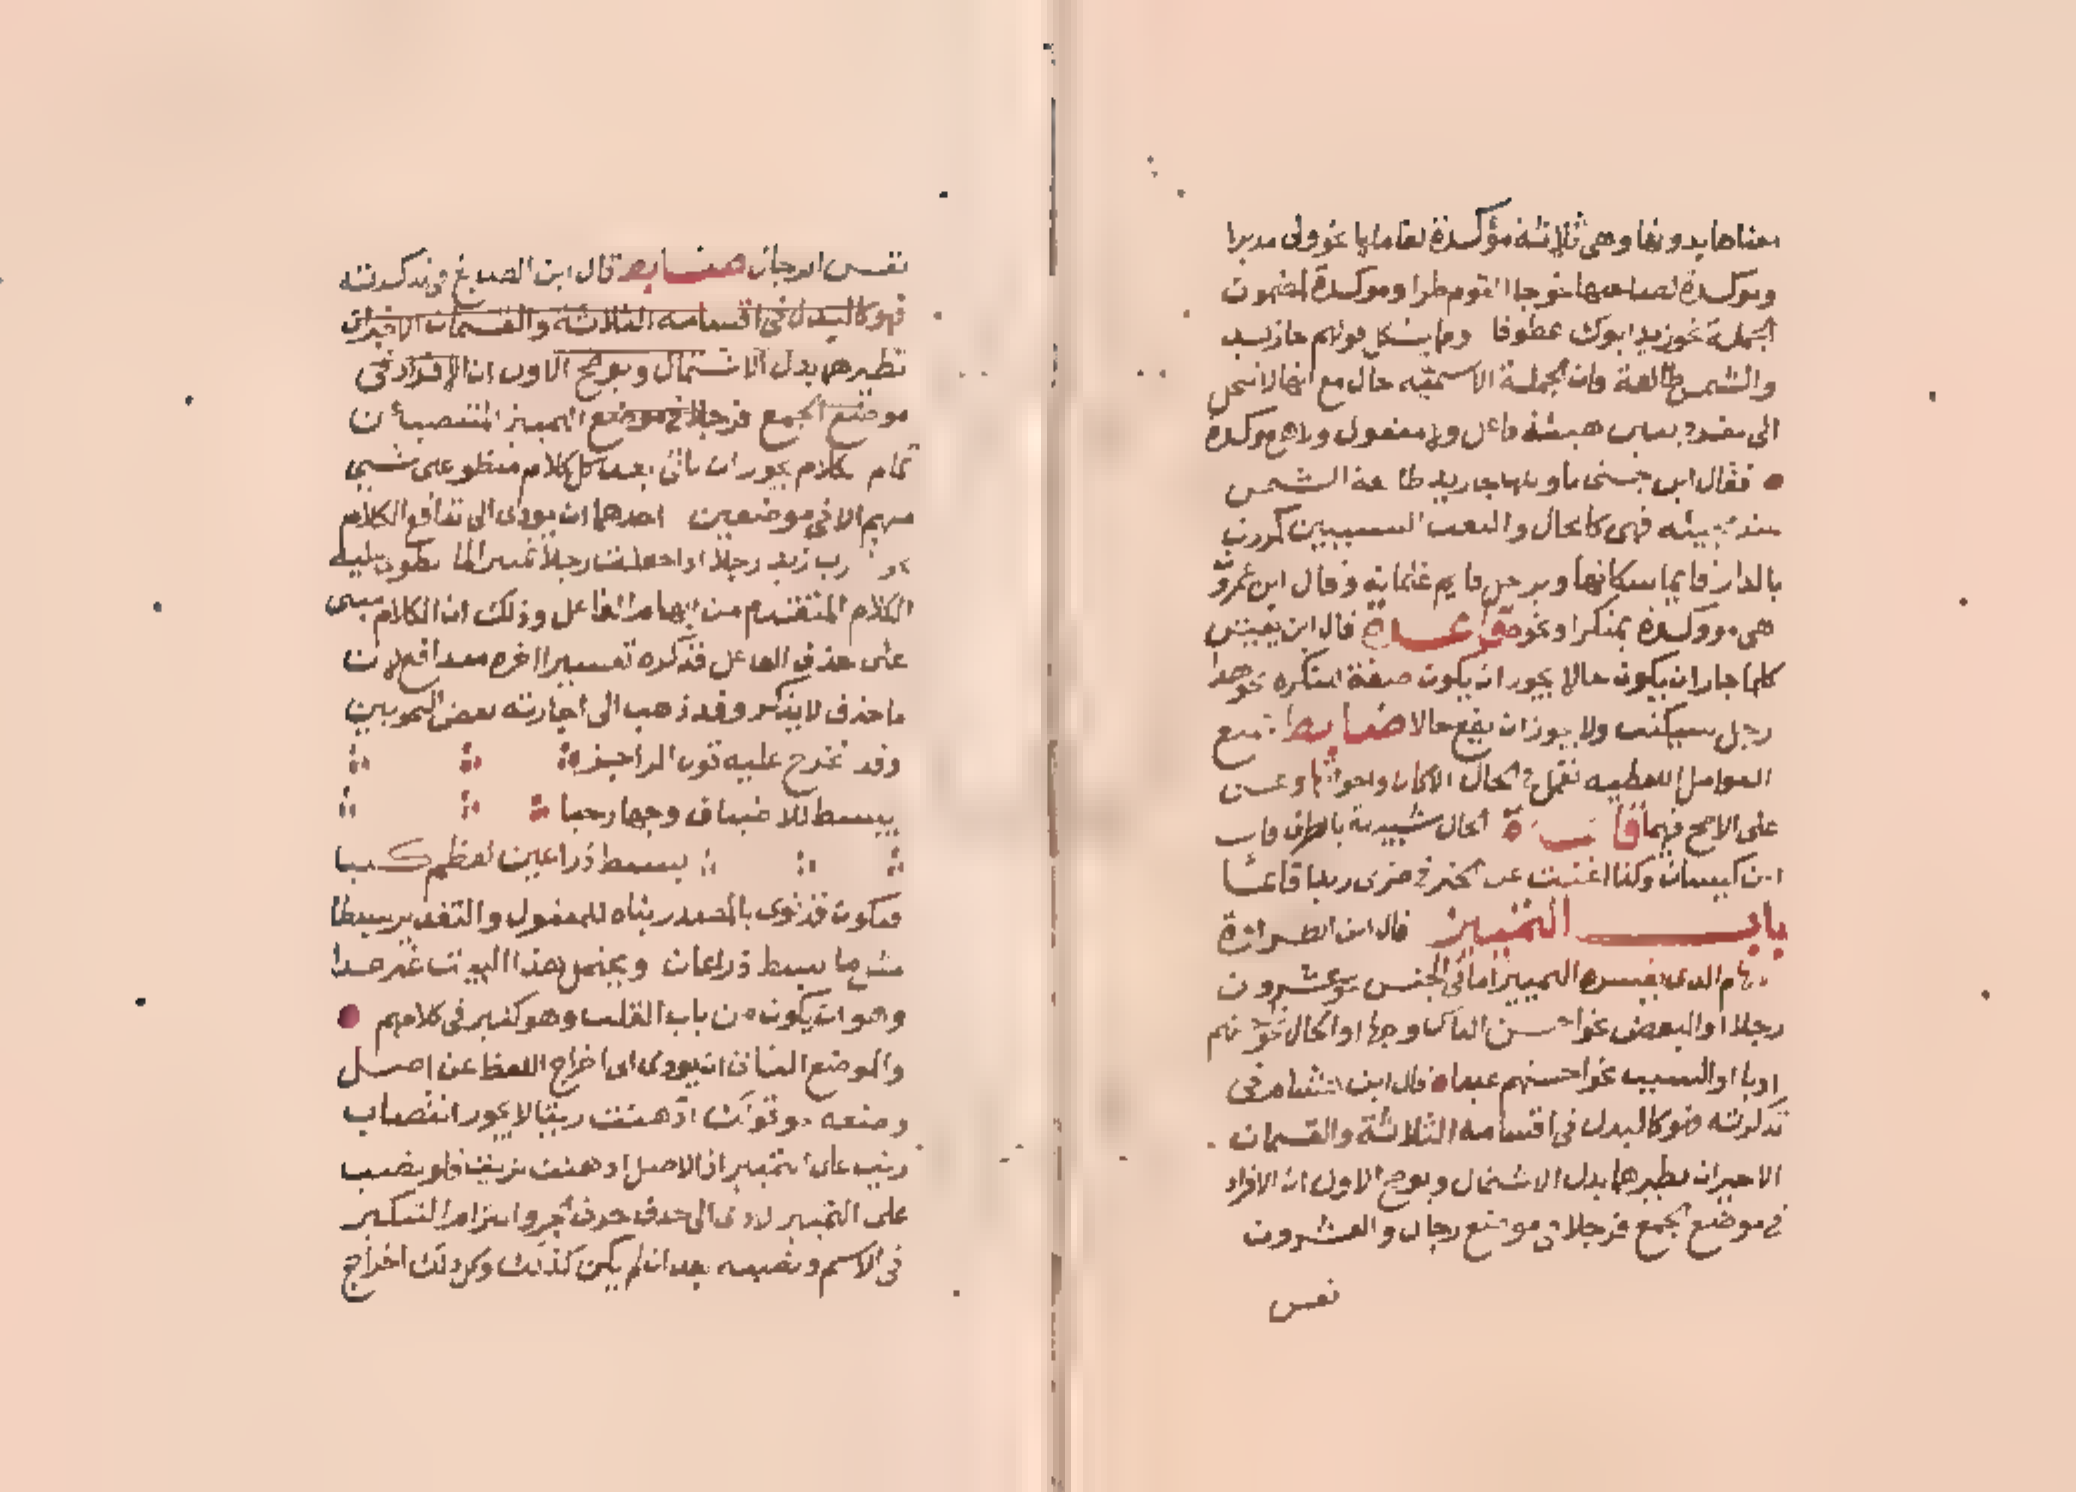 معناها بدونها وهي ثلاثة مؤكدة لعاملها نحو ولى مدبرا
ومؤكدة لصاحبها نحو جا القوم طرا ومؤكدة لمضمون
الجملة نحو زيد ابوك عطوفا وما يشكل قولهم جا زيد
والشمس طالعة فان الجملة الاسمية حال مع انها لا تنحل
الى مفرد يبين هيئة فاعل ولا مفعول ولا هي مؤكدة
فقال ابن جنى تاويلها جا زيد طالعة الشمس
عند مجيئه فهى كالحال والنعت السببيين كمررت
بالدار قايما سكانها وبرجل قايم غلمانه وقال ابن عمرو
هي مووكدة بمبكرا ونحوه قاعدة قال ابن يعيش
كلما جاز ان يكون حالا يجوز ان يكون صفة لنكره نحو هذا
رجل سيكتب ولا يجوز ان يقع حالا ضابط جميع
العوامل اللفظيه تعمل في الحال الا كان واخواتها وعسى
على الاصح فيهما الحال شبيهة بالظرف قاب
ابن كيسان ولذا اغنيت عن الخبر في ضربى زيدا قاعًا
باب التمييز قال ابن الطراوة
الذى يفسره التمييز اما في الجنس نحو عشرون
رجلا او البعض نحو احسن الناس وجها او الحال نحو
ادبا او السبب نحو احسنهم عبدا قال ابن هشام في
تذكرته ضوكالبدل في اقسامه الثلاثة والقسمان
الاخيران نظيرهما بدل الاشتمال ويوضح الاول ان الافراد
في موضع الجمع فرجلا في موضع رجال والعشرون
نفس
نفس الرجال ضابط قال ابن الصايغ في تذكرته
فهو كالبدل في اقسامه الثلاثة والقسمان الاخيران
نظيرهما بدل الاشتمال ويوضح الاول ان الافراد في
موضع الجمع فرجلا في موضع التمييز المنتصب عن
تمام الكلام يجوز ان ياتى بعد كل كلام منطو على شيى
مبهم الا في موضعين احدهما ان يودى الى تدافع الكلام
نحو ضرب زيد رجلا اذا جعلت رجلا تفسيرا لما انطوى عليه
الكلام المتقدم من ابهام الفاعل وذلك ان الكلام مبنى
على حذف الفاعل فذكره تفسيرا اخره متدافع لان
ما حذف لا يذكر وقد ذهب الى اجازته بعض النحويين
وقد تخرج عليه قول الراجز
يبسط للاضياف وجها رحبا
بسط ذراعين لعظم كلبا
فيكون قد نوى بالمصدر بناه للمفعول والتقدير بسطا
مثل ما بسط ذراعان ويحتمل هذا البيت غير هذا
وهو ان يكون من باب القلب وهو كثير في كلامهم
والموضع الثانى ان يودى الى اخراج اللفظ عن اصل
وضعه نحو قولك ادهنت زيتا لا يجوز انتصاب
زيت على التمييز اذ الاصل ادهنت بزيت فلو نصب
على التمييز لادى الى حذف حرف الجر والتزام التنكير
في الاسم ونصبه بعد ان لم يكن كذلك وكل ذلك اخراج